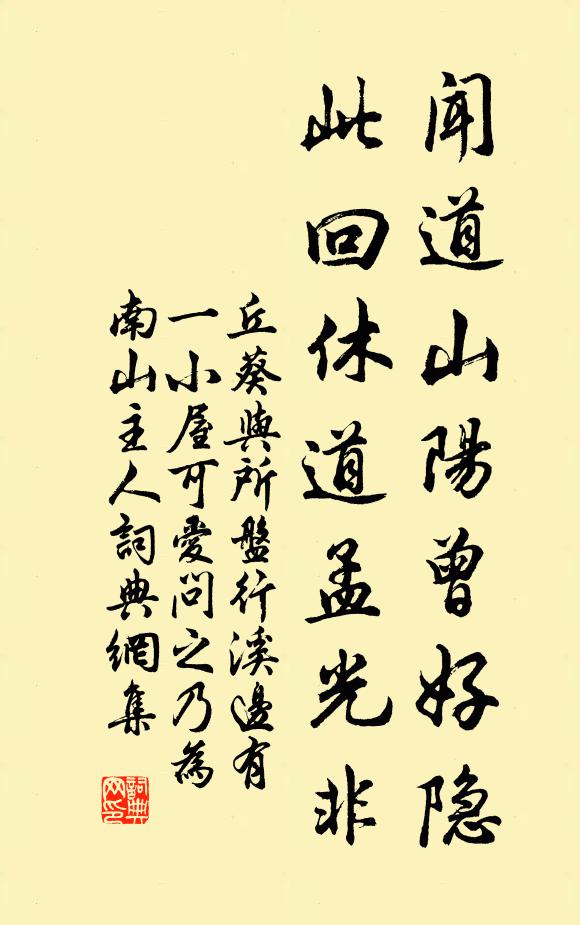 闻道山陽曾好隐
此回休道孟光非
丘葵與所盤行溪邊有
一小屋可愛问之乃為
南山主人詞典網集
詞典
网印